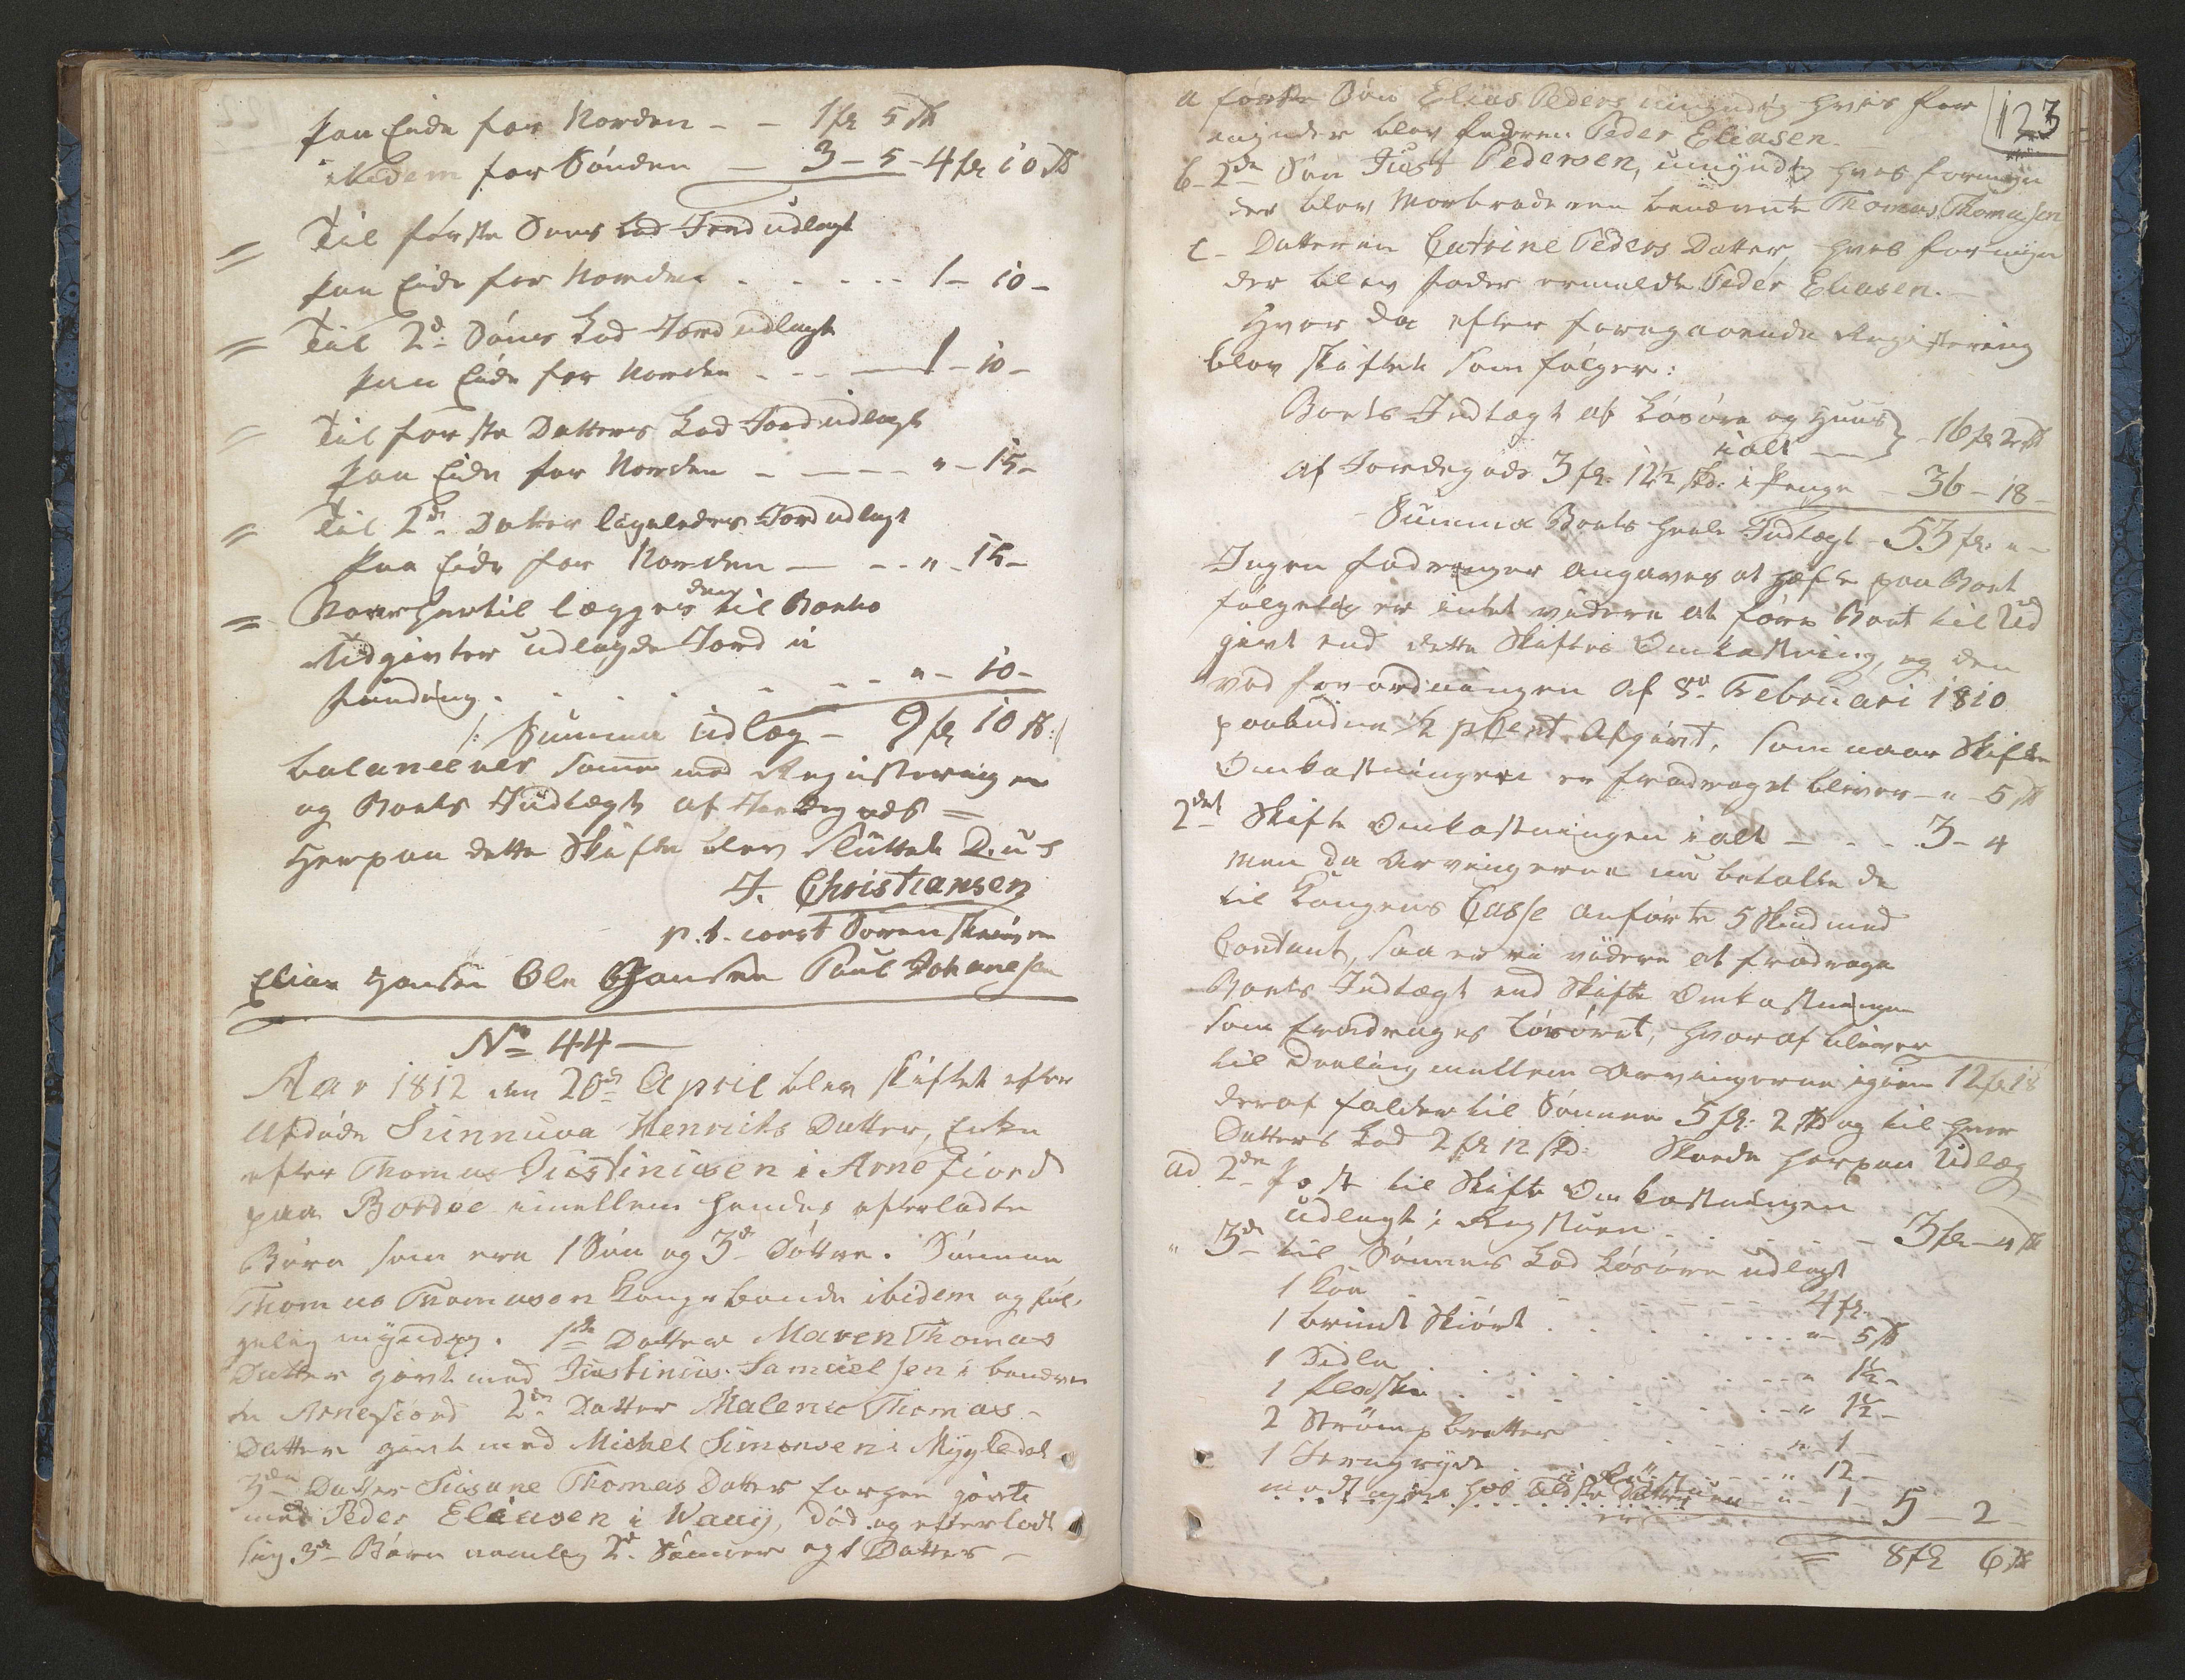 paa Eide for Norden - - 1 fr 5 sk
ibidem for Sønden - 3 - 5 - 4 fr 10 sk
= Til første Søns Lod Jord udlagt
paa Eide for Norden . . . . . 1 - 10 -
= Til 2d: Søns Lod Jord udlagt
paa Eide for Norden . . . — 1 - 10 -
= Til første Datters Lod Jord udlagt
paa Eide for Norden - - - - " - 15 -
= Til 2d: Datter ligeledes Jord udlagt
paa Eide for Norden — - - " - 15 -
= Naar hertil lægges den til Boets
Udgivter udlagde Jord i
" - 10 -
/: Summa udlæg - 9 fr 10 sk :/
balancerer samme med Registeringen
og Boets Indtægt af Jordegods =
Herpaa dette Skifte blev sluttet D. u s
J. Christiansen
p. t. const Sorenskriver
Elias Hansen Ole Hansen Poul Johanesen
No 44 —
Aar 1812 den 20de April blev skiftet efter
Afdøde Sunnuva Henriks Datter, Enke
efter Thomas Justinusen i Arnefiord
paa Bordøe imellem hendes efterladte
Børn som ere 1 Søn og 3de Døttre. Sønnen
Thomas Thomasen Kongsbonde ibidem og føl-
gelig myndig. 1ste Datter Maren Thomas
Datter givt med Justinus Samuelsen i bemeld-
te Arnefiord 2den Datter Malene Thomas-
Datter givt med Michel Simonsen i Mygledal
3die Datter Susane Thomas Datter forhen givte
med Peder Eliasen i Waag, død og efterladt
sig 3de Børn nemlig 2de Sønner og 1 Datter -
123
a første Søn Elias Peders umyndig hvis for
mynder blev Faderen Peder Eliasen.
b - 2den Søn Just Pedersen, umyndig hvis formyn
der blev Morbroderen benævnte Thomas Thomasen
c - Datteren Catrine Peders Datter, hvis formyn
der blev Fader ermeldte Peder Eliasen. -
Hvor da efter foregaaende Registering
blev skiftet som følger:
Boets Indtægt af Løsøre og Huus
ialt — } - 16 fr 2 sk
af Jordegods 3 fr: 12½ skd: i Penge - 36 - 18 -
Summa Boets heele Indtægt - 53 fr. " -
Ingen fodringer angaves at hæfte paa Boet
følgelig er intet videre at føre Boet til Ud
givt end dette Skiftes Omkostning, og den
ved forordningen af 8de Februari 1810
paabudne ½ pCent Afgivt, som naar Skifte
Omkostningen er fradraget bliver - " - 5 sk
2det Skifte Omkostningen i alt — - - 3 - 4
Men da Arvingerne nu betalte de
til Kongens Casse anførte 5 Skind med
Contant, saa er ei videre at fradrage
Boets Indtægt end Skifte Omkostningen
som fradrages Løsøret, hvoraf bliver
til Deeling mellem Arvingerne igien 12 fr 18
deraf falder til Sønnen 5 fr: 2 skd og til hver
Datters Lod 2 fr 12 skd: Skeede herpaa Udlæg
ad 2den Post til Skifte Omkostningen
udlagt i Røgstuen . . . . . - 3 fr - 4 sk
" 3de til Sønnens Lod Løsøre udlagt
1 Koe - - - - - - - 4 fr -
1 bruunt Skiørt . . . . . . . " - 5 sk
1 Sidle . . . . . . . . . - " 1½ -
1 flaske . . . . . . . . - " 1½ -
2 Strømpbretter . . . . . " - 1 -
1 Jerngryde . . . . - " 12 -
hos ældste Datter - " - 1 - 5 - 2 -
= 8 fr 6 sk